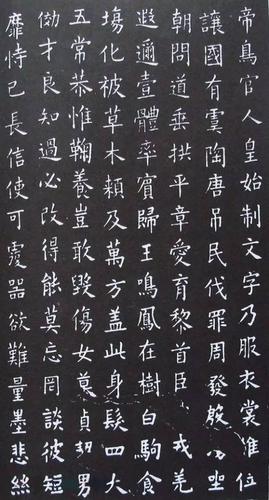 帝鳥官人皇始制文字乃服衣裳推位
讓國有虞陶唐吊民伐罪周發殷坐
朝問道垂拱平章愛育黎首臣戎羌
遐邇壹體率賓歸王鳴鳳在樹白駒食
場化被草木賴及萬方盖此身髮四大
五常恭惟鞠養豈敢毀傷女慕貞男
効才良知過必改得能莫忘罔談彼短
靡恃己長信使可覆器欲難量墨悲絲